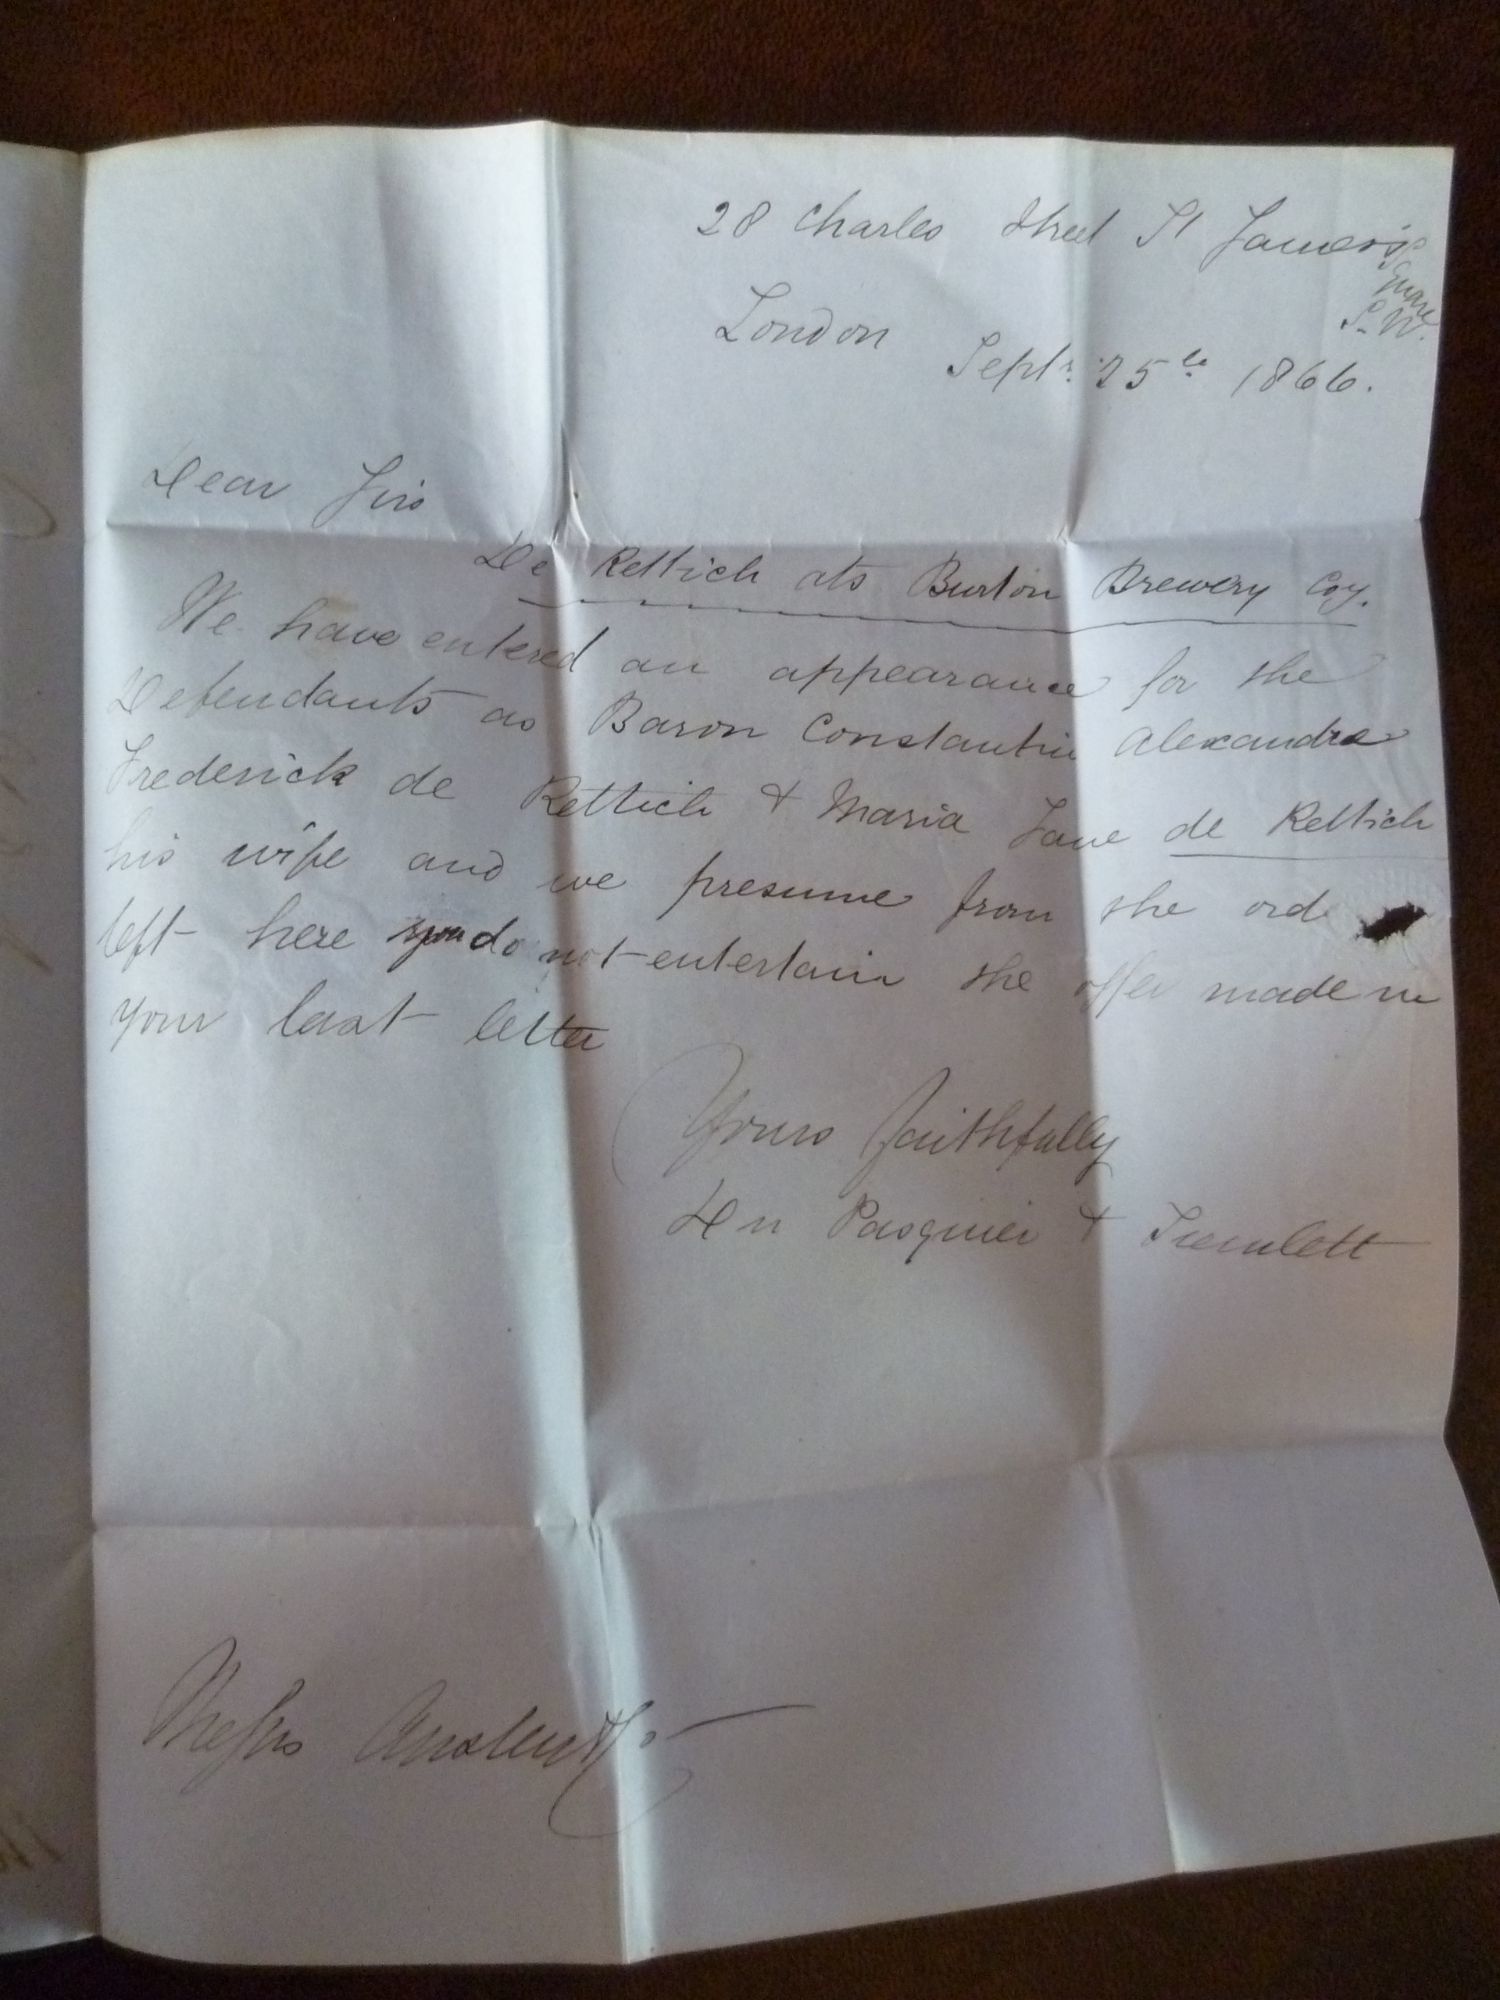 28 Charles Street St James's
Square
S.W.
London
Septr. 25th 1866.
Dear Sirs
De Rettich ats Burton Brewery Coy.
We have entered an appearance for the
Defendants as Baron Constantin Alexandre
Frederick de Rettich & Maria Jane de Rettich
his wife and we presume from the ord
left here you do not entertain the offer made in
your last letter
Yours faithfully
Du Pasquier & Tremlett
Messrs